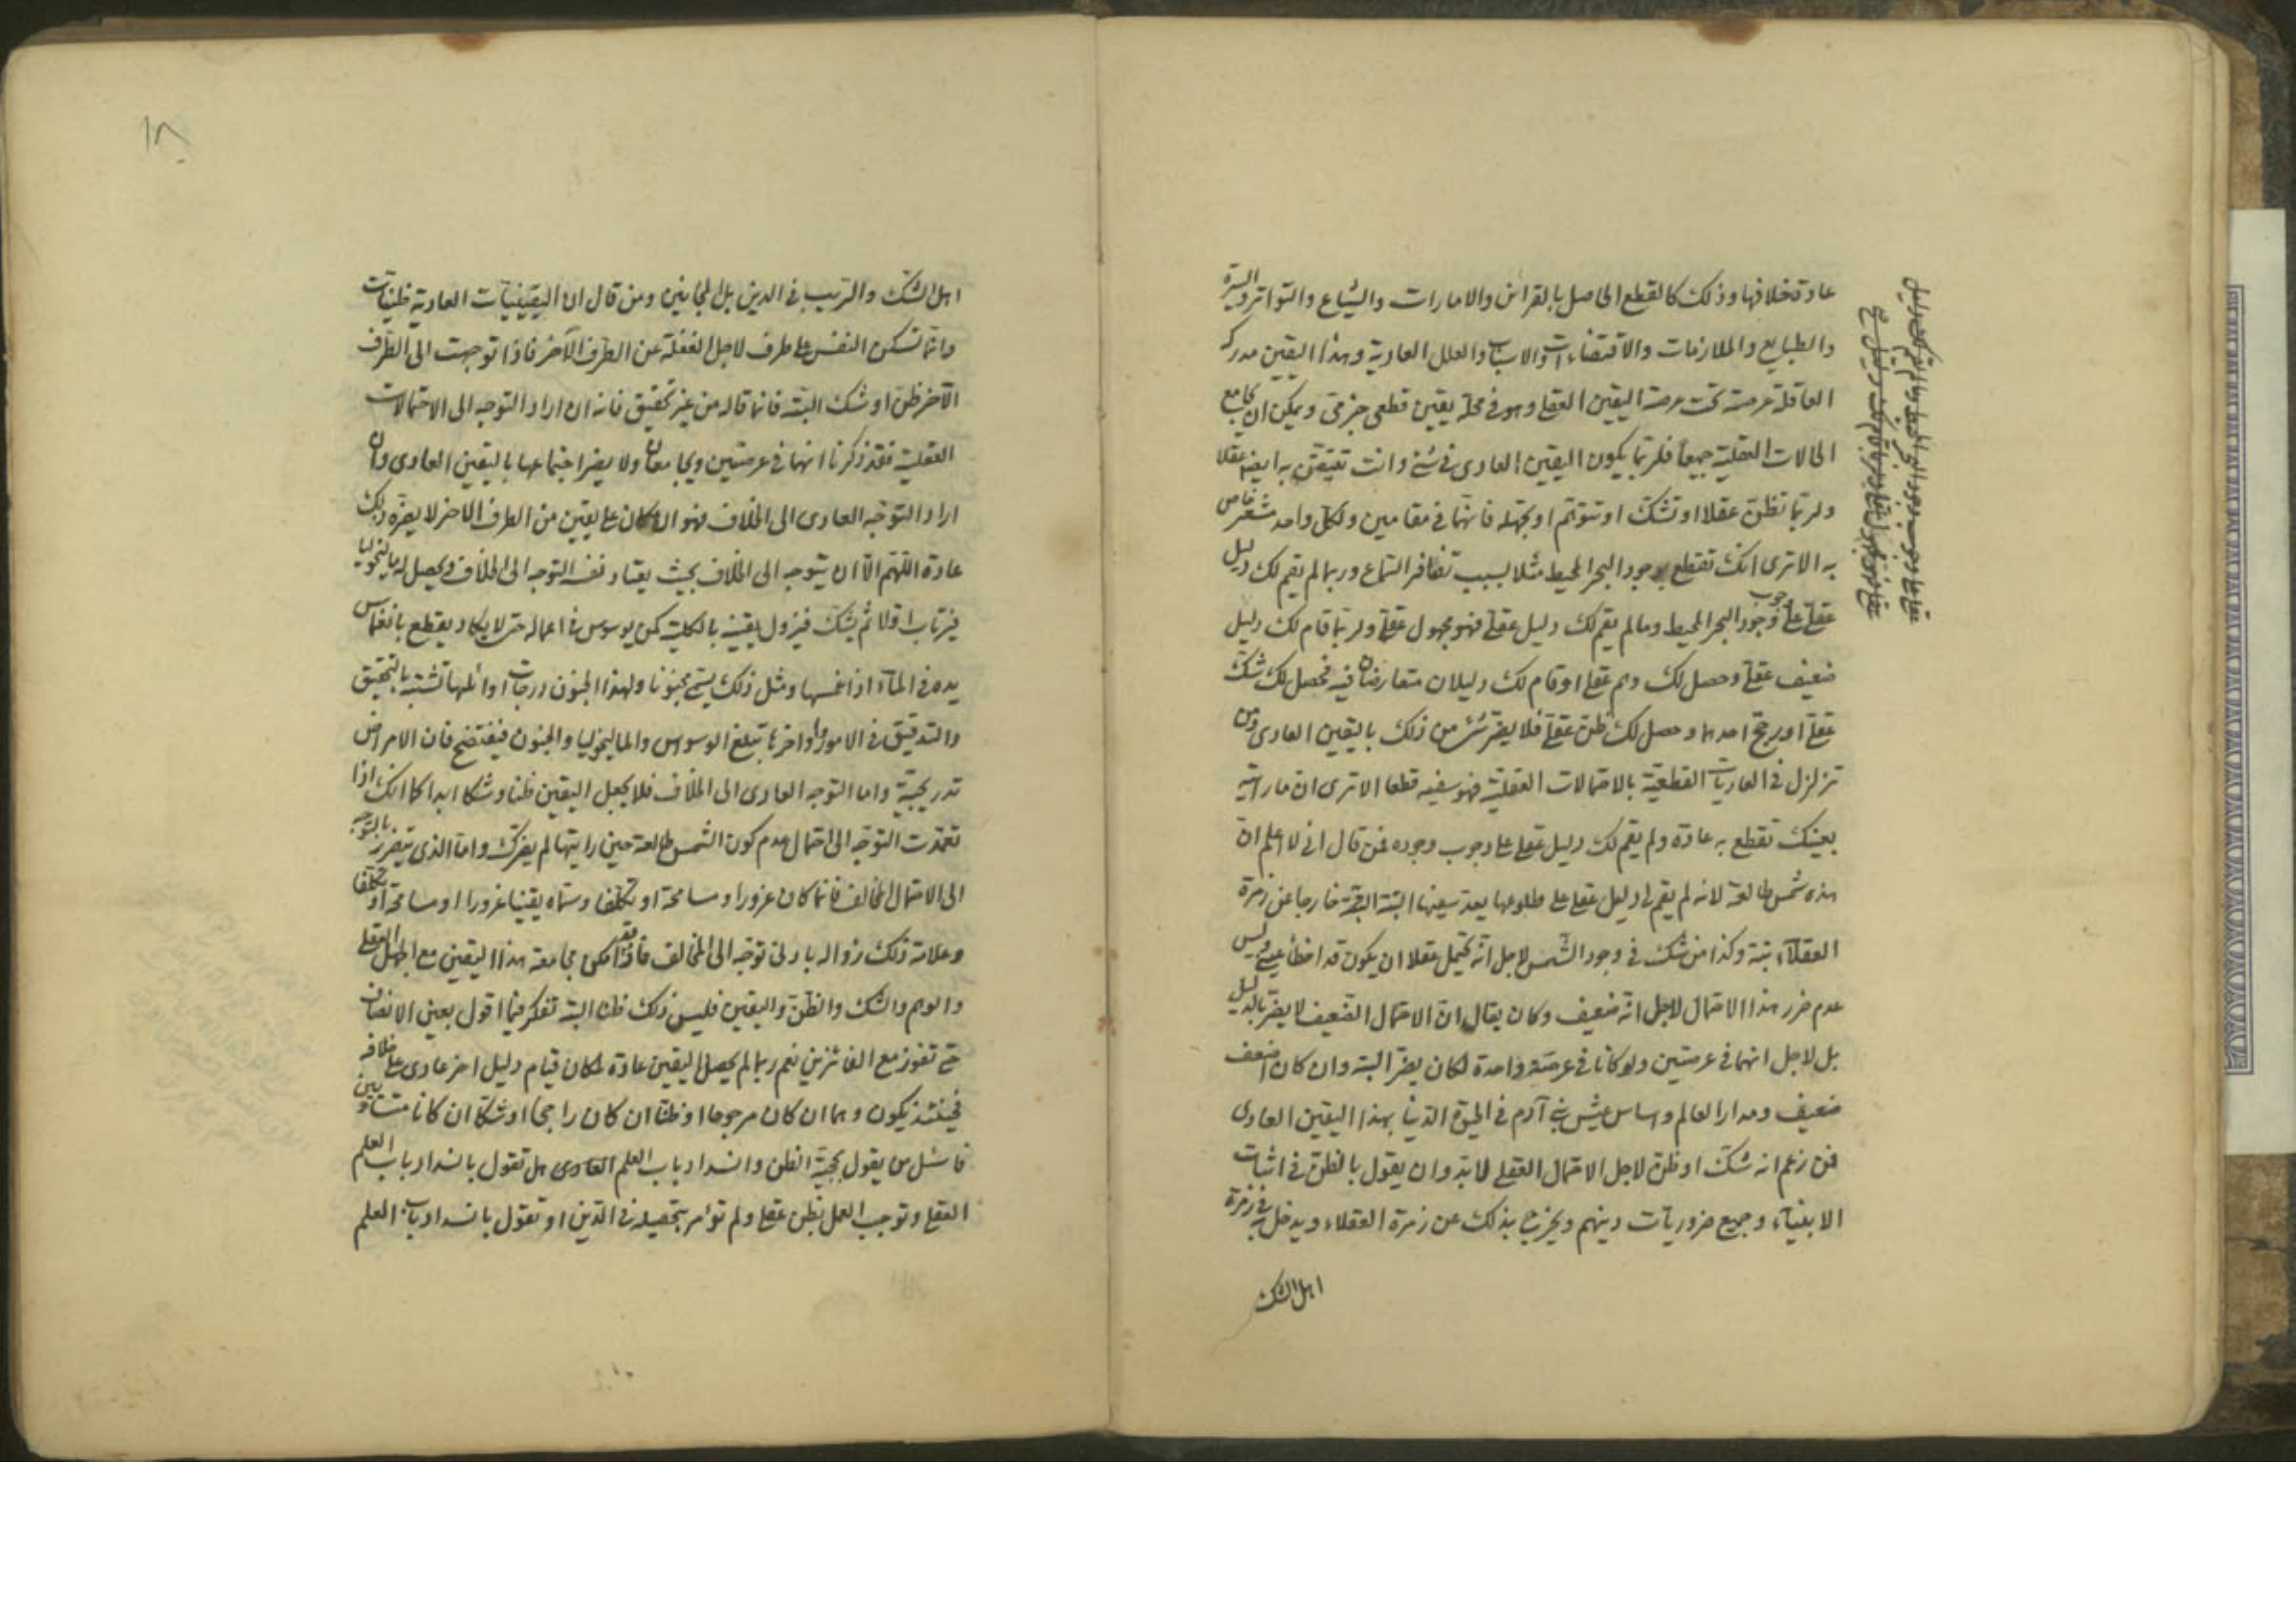 عادة خلافها وذلك كالقطع الحاصل بالقرائن والامارات والشياع والتواتر والسيرة
والطبايع والملازمات والاقتضاءات والاسباب والعلل العادية وهذا اليقين مدركه
العاقلة عرصته تحت عرصة اليقين العقلي وهو في محله يقين قطعي جزمي ويمكن ان يجامع
الحالات العقلية جميعا فلربما يكون اليقين العادي في شئ وانت تتيقن به ايضا عقلا
ولربما تظن عقلا او تشك او تتوهم او تجهله فانهما في مقامين ولكل واحد مشعر خاص
به الاترى انك تقطع بوجود البحر المحيط مثلا بسبب تظافر السماع وربما لم يقم لك دليل
عقلي على وجوب وجود البحر المحيط وما لم يقم لك دليل عقلي فهو مجهول عقلي ولربما قام لك دليل
ضعيف عقلي وحصل لك وهم عقلي او قام لك دليلان متعارضان فيه فحصل لك شك
عقلي او رجح احدهما وحصل لك ظن عقلي فلا يضر شئ من ذلك باليقين العادي ومن
تزلزل في العاديات القطعية بالاحتمالات العقلية فهو سفيه قطعا الاترى ان ما رايته
بعينك تقطع به عادة ولم يقم لك دليل عقلي على وجوب وجوده فمن قال اني لا اعلم ان
هذه شمس طالعة لانه لم يقم لي دليل عقلي على طلوعها يعد سفيها البتة البتة خارجا عن زمرة
العقلاء بتة وكذا من شك في وجود الشمس لاجل انه يحتمل عقلا ان يكون قد اخطأ عيني وليس
عدم ضرر هذا الاحتمال لاجل انه ضعيف وكان يقال ان الاحتمال الضعيف لا يضر بالدليل
بل لاجل انهما في عرصتين ولو كانا في عرصة واحدة لكان يضر البتة وان كان اضعف
ضعيف ومدار العالم واساس عيش بني آدم في الحيوة الدنيا بهذا اليقين العادي
فمن زعم انه شك او ظن لاجل الاحتمال العقلي لابد وان يقول بالظن في اثبات
الانبياء وجميع ضروريات دينهم ويخرج بذلك عن زمرة العقلاء ويدخل في زمرة
اهل الشك
اهل الشك والريب في الدين بل المجانين ومن قال ان اليقينيات العادية ظنيات
وانما تسكن النفس على طرف لاجل الغفلة عن الطرف الآخر فاذا توجهت الى الطرف
الآخر ظن او شك البتة فانما قاله من غير تحقيق فانه ان اراد التوجه الى الاحتمالات
العقلية فقد ذكرنا انهما في عرصتين ويجامعان ولا يضر اجتماعها باليقين العادي وان
اراد التوجه العادي الى الخلاف فهو ان كان على يقين من الطرف الاخر لا يضره ذلك
عادة اللهم الا ان يتوجه الى الخلاف بحيث يعتاد نفسه التوجه الى الخلاف ويحصل له ماليخوليا
فيرتاب اولا ثم يشك فيزول يقينه بالكلية كمن يوسوس في اعماله حتى لا يكاد يقطع بانغماس
يده في الماء اذا غمسها ومثل ذلك يسمى مجنونا ولهذا الجنون درجات اوائلها تشتبه بالتحقيق
والتدقيق في الامور واواخرها تبلغ الوسواس والماليخوليا والجنون فيفتضح فان الامراض
تدريجية واما التوجه العادي الى الخلاف فلا يجعل اليقين ظنا وشكا ابدا كما انك اذا
تعمدت التوجه الى احتمال عدم كون الشمس طالعة حين رايتها لم يضرك واما الذي يتضرر بالتوجه
الى الاحتمال المخالف فانما كان غرورا ومسامحة او تكلفا وسماه يقينا غرورا او مسامحة او تكلفا
وعلامة ذلك زواله بادنى توجه الى المخالف فاذا امكن مجامعة هذا اليقين مع الجهل العقلي
والوهم والشك والظن واليقين فليس ذلك ظنا البتة تفكر فيما اقول بعين الانصاف
حتى تفوز مع الفائزين نعم ربما لم يحصل اليقين عادة لمكان قيام دليل اخر عادي على خلافه
فحينئذ يكون وهما ان كان مرجوحا او ظنا ان كان راجحا او شكا ان كانا متساويين
فاسئل من يقول بحجية الظن وانسداد باب العلم العادي هل تقول بانسداد باب العلم
العقلي وتوجب العمل بظن عقلي ولم تؤمر بتحصيله في الدين او تقول بانسداد باب العلم